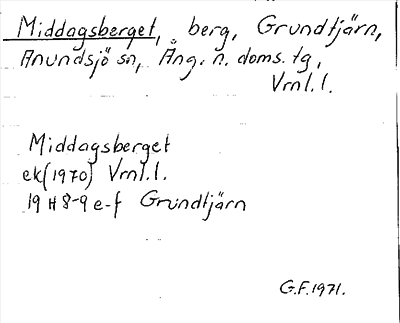 Middagsberget, berg, Grundtjärn,
Anundsjö sn, Ång. n. doms. tg,
Vrnl. l.
Middagsberget
ek (1970) Vrnl. l.
19 H 8-9 e-f Grundtjärn
G.F. 1971.